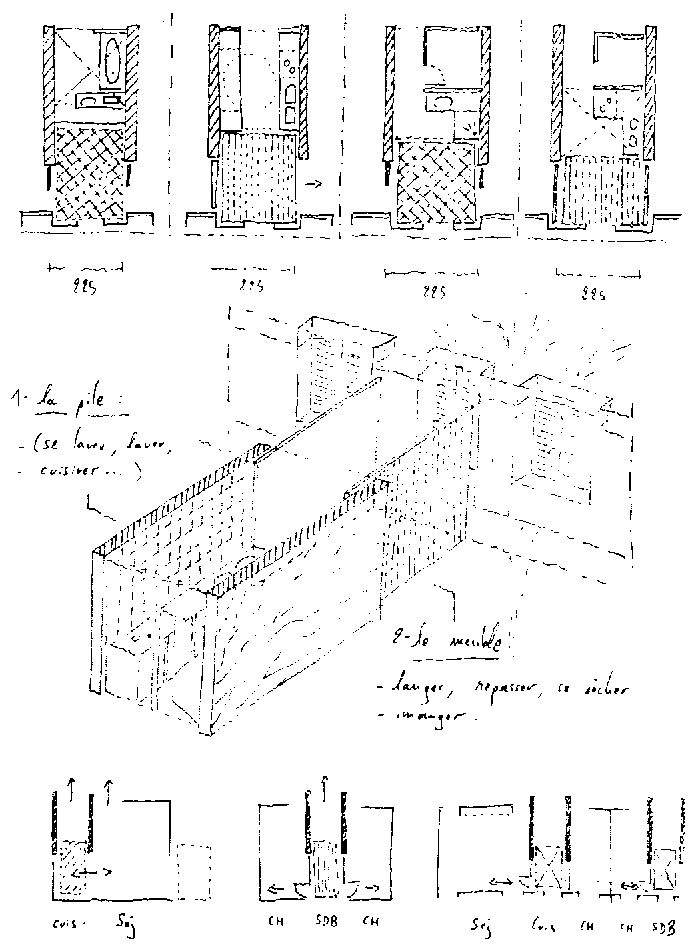 225
225
225
225
1- la pile :
- (se laver, laver,
- cuisiner ... )
2- le meuble
- langer, repasser, se sécher
- manger.
cuis. Séj
CH SDB CH
Séj Cuis CH CH SDB